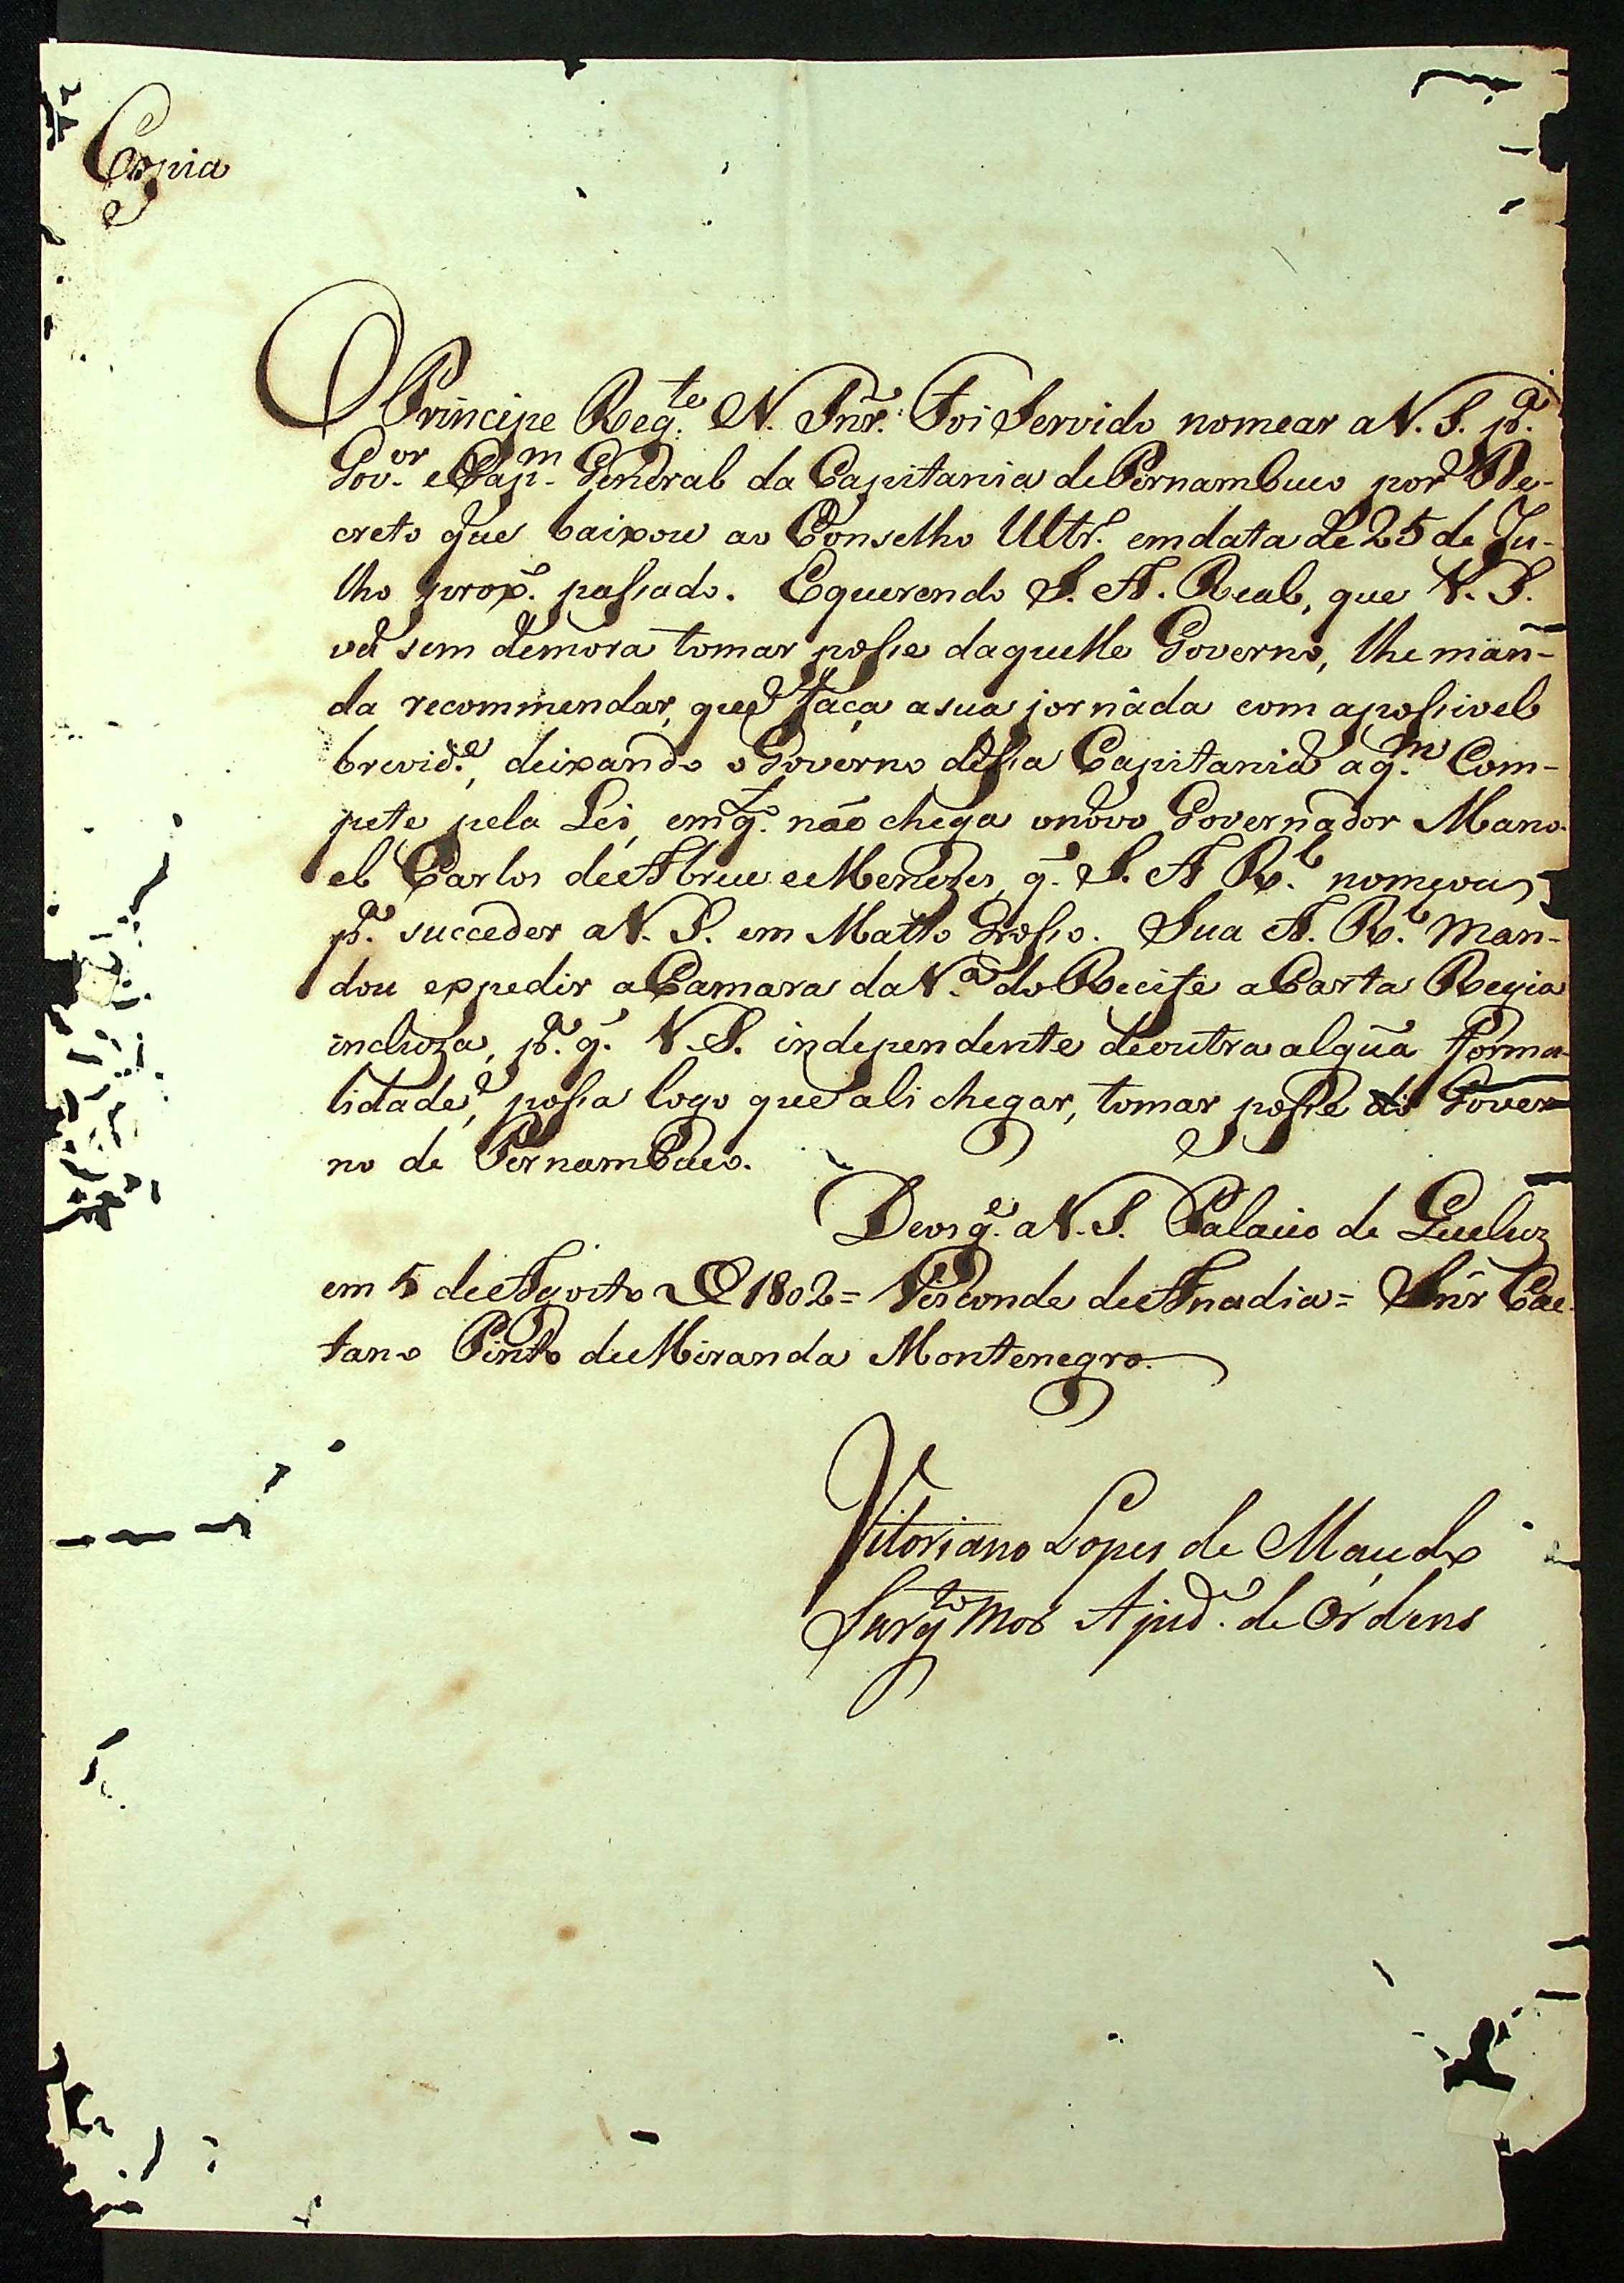 Copia
O Principe Reg.te N. Snr.' Foi Servido nomear a V. S. p.a
Gov.or e Cap.m General da Capitania de Pernambuco por De-
creto que baixou ao Conselho Ultr.o em data de 25 de Ju-
lho prox.o passado. E querendo S. A. Real, que V. S.
vá sem demora tomar posse daquelle Governo, lhe man-
da recommendar, que faça a sua jornáda com a possivel
brevid.e, deixando o Governo dessa Capitania a q.m Com-
pete pela Lei, em q.to não chega o novo Governador Mano-
el Carlos de Abreu e Menezes, q.' S. A R.l nomeou
p.a succeder a V. S. em Matto Grosso. Sua A. R.l Man-
dou expedir a Camara da V.a do Recife a Carta Regia
incluza, p.a q.' V. S. independente de outra algũa forma-
lidade, possa logo que ali chegar, tomar posse do Gover-
no de Pernambuco.
Deos g.e a V. S. Palacio de Queluz
em 5 de Agosto de 1802 = Visconde de Anadia = Snr Cae-
tano Pinto de Miranda Montenegro.
Vitoriano Lopes de Macedo
Sarg.to Mor Ajud.e de Ordens